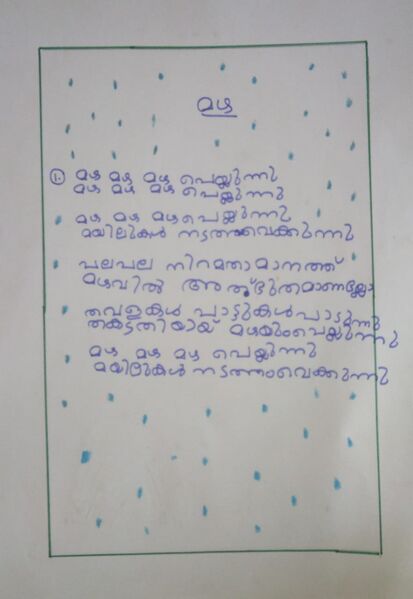 മഴ
① മഴ മഴ മഴ പെയ്യുന്നു
മഴ മഴ മഴ പെയ്യുന്നു
മഴ മഴ മഴ പെയ്യുന്നു
മയിലുകൾ നടത്തംവെക്കുന്നു
പലപല നിറമതാമാനത്ത്
മഴവില്ലു അത്ഭുതമാണല്ലോ
തവളകൾ പാട്ടുകൾപാടുന്നു
തകടതിയായ് മഴയുംപെയ്യുന്നു
മഴ മഴ മഴ പെയ്യുന്നു
മയിലുകൾ നടത്തംവെക്കുന്നു